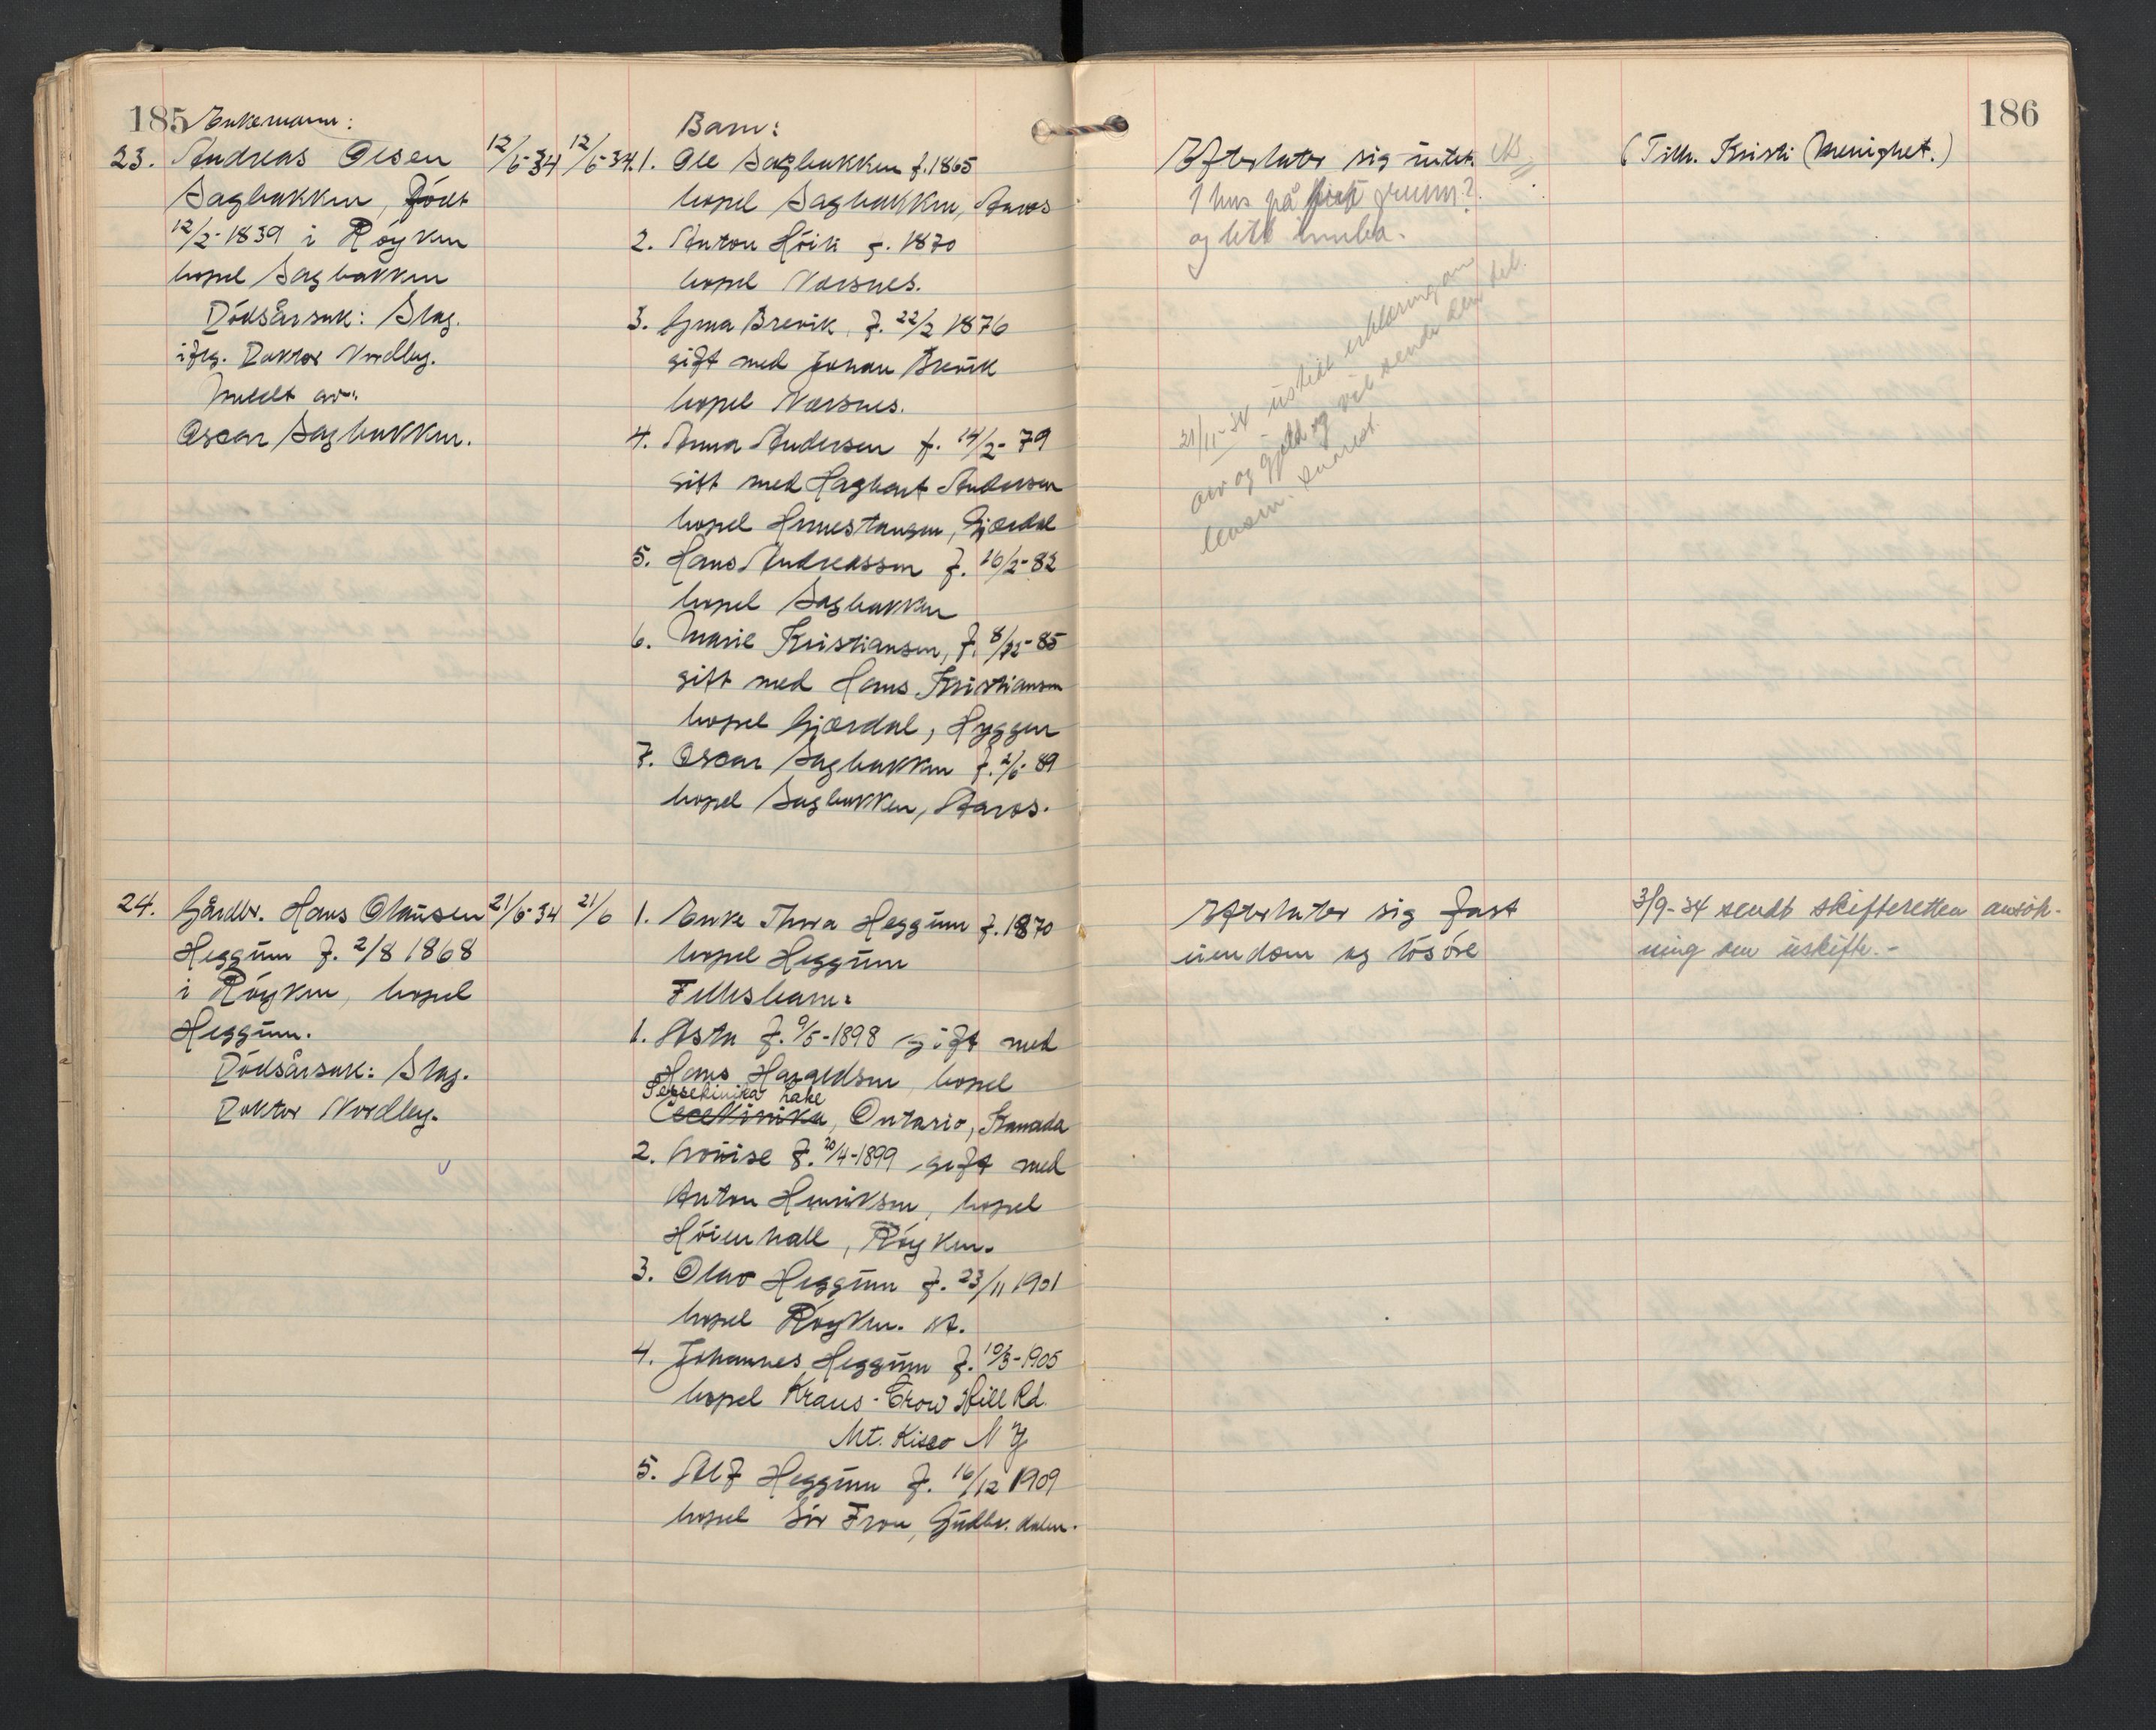 185
Enkemann:
23. Andreas Olsen 12/6-34 12/6-34.
Sagbakken, født
12/2-1839 i Røyken
bopel Sagbakken
Dödsårsak: Slag.
iflg. Doktor Nordby.
Meldt av:
Oscar Sagbakken.
Barn:
1. Ole Sagbakken f. 1865
bopel Sagbakken, Åaros
2. Anton Höik f. 1870
bopel Nærsnes.
3. Gina Brevik, f. 22/2 1876
gift med Johan Brevik
bopel Nærsnes.
4. Anna Andersen f. 14/2-79
gift med Hagbart Andersen
bopel Hernestangen, Gjærdal
5. Hans Andreassen f. 26/2-82
bopel Sagbakken
6. Marie Kristiansen, f. 8/12-85
gift med Hans Kristiansen
bopel Gjærdal, Hyggen
7. Oscar Sagbakken f. 2/6-89
bopel Sagbakken, Åaros.
24. Gårdbr. Hans Olausen 21/6-34 21/6
Heggum f. 2/8 1868
i Røyken, bopel
Heggum.
Dödsårsak: Slag.
Doktor Nordby.
1. Enke Thora Heggum f. 1870
bopel Heggum
Fellesbarn:
1. Asta f. 9/5-1898 gift med
Hans Haraldsen, bopel
Sesekinika Lake
Cecekinika, Ontario, Kanada
2. Lovise f. 20/4-1899 gift med
Anton Henriksen, bopel
Höienhall, Røyken.
3. Olav Heggum f. 23/11 1901
bopel Røyken. st.
4. Johannes Heggum f. 10/3-1905
bopel Kraus-Crow Hill Rd.
Mt. Kisco N Y
5. Alf Heggum f. 16/12 1909
bopel Sør Fron, Gudbr. dalen.
186
Efterlater sig intet.
1 hus på grunn?
og litt innbo.
21/11-34 utstedt erklæring om
arv og gjeld og vil sende den tel.
lensm. snarest.
(Tilh. Kristi Menighet.)
Efterlater sig fast
eiendom og lösöre
3/9-34 sendt skifteretten ansök-
ning om uskifte.-